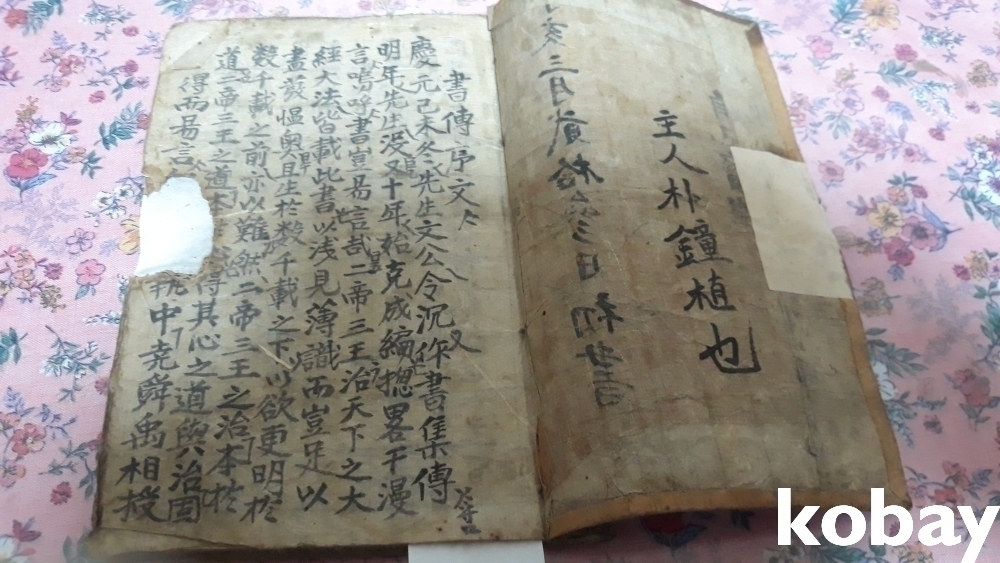 主人朴鐘植也
亥三月
書傳序文
慶元己未冬先生文公令沉作書集傳
明年先生没又十年始克成編摠畧干漫
言嗚呼書豈易言哉二帝三王治天下之大
經大法皆載此書以淺見薄識而豈足以
盡發慍奧且生於数千載之下以欲更明於
数千載之前亦以難然二帝三王之治本於
道二帝三王之道本得其心之道與治固
得而易言執中堯舜禹相授
kobay